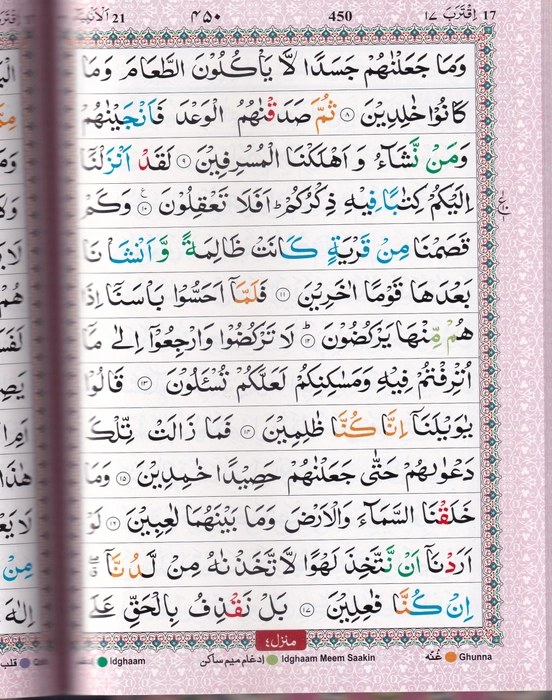 اَلْاَنْبِيَآء 21 ۴۵۰ 450 اِقْتَرَبَ ۱۷ 17
وَمَا جَعَلْنٰهُمْ جَسَدًا لَّا يَاْكُلُوْنَ الطَّعَامَ وَمَا
كَانُوْا خٰلِدِيْنَ ﴿۸﴾ ثُمَّ صَدَقْنٰهُمُ الْوَعْدَ فَاَنْجَيْنٰهُمْ
وَمَنْ نَّشَآءُ وَ اَهْلَكْنَا الْمُسْرِفِيْنَ ﴿۹﴾ لَقَدْ اَنْزَلْنَا
اِلَيْكُمْ كِتٰبًا فِيْهِ ذِكْرُكُمْ ؕ اَفَلَا تَعْقِلُوْنَ ﴿۱۰﴾ وَكَمْ
قَصَمْنَا مِنْ قَرْيَةٍ كَانَتْ ظَالِمَةً وَّ اَنْشَاْ نَا
بَعْدَهَا قَوْمًا اٰخَرِيْنَ ﴿۱۱﴾ فَلَمَّاۤ اَحَسُّوْا بَاْسَنَاۤ اِذَا
هُمْ مِّنْهَا يَرْكُضُوْنَ ﴿۱۲﴾ لَا تَرْكُضُوْا وَارْجِعُوْۤا اِلٰى مَاۤ
اُتْرِفْتُمْ فِيْهِ وَمَسٰكِنِكُمْ لَعَلَّكُمْ تُسْـَٔلُوْنَ ﴿۱۳﴾ قَالُوْا
يٰوَيْلَنَاۤ اِنَّا كُنَّا ظٰلِمِيْنَ ﴿۱۴﴾ فَمَا زَالَتْ تِّلْكَ
دَعْوٰىهُمْ حَتّٰى جَعَلْنٰهُمْ حَصِيْدًا خٰمِدِيْنَ ﴿۱۵﴾ وَمَا
خَلَقْنَا السَّمَآءَ وَالْاَرْضَ وَمَا بَيْنَهُمَا لٰعِبِيْنَ ﴿۱۶﴾ لَوْ
اَرَدْنَاۤ اَنْ نَّتَّخِذَ لَهْوًا لَّاتَّخَذْنٰهُ مِنْ لَّدُنَّاۤ
اِنْ كُنَّا فٰعِلِيْنَ ﴿۱۷﴾ بَلْ نَقْذِفُ بِالْحَقِّ عَلَى
منزل۴
Idghaam ادغام ميم ساكن Idghaam Meem Saakin غُنّه Ghunna